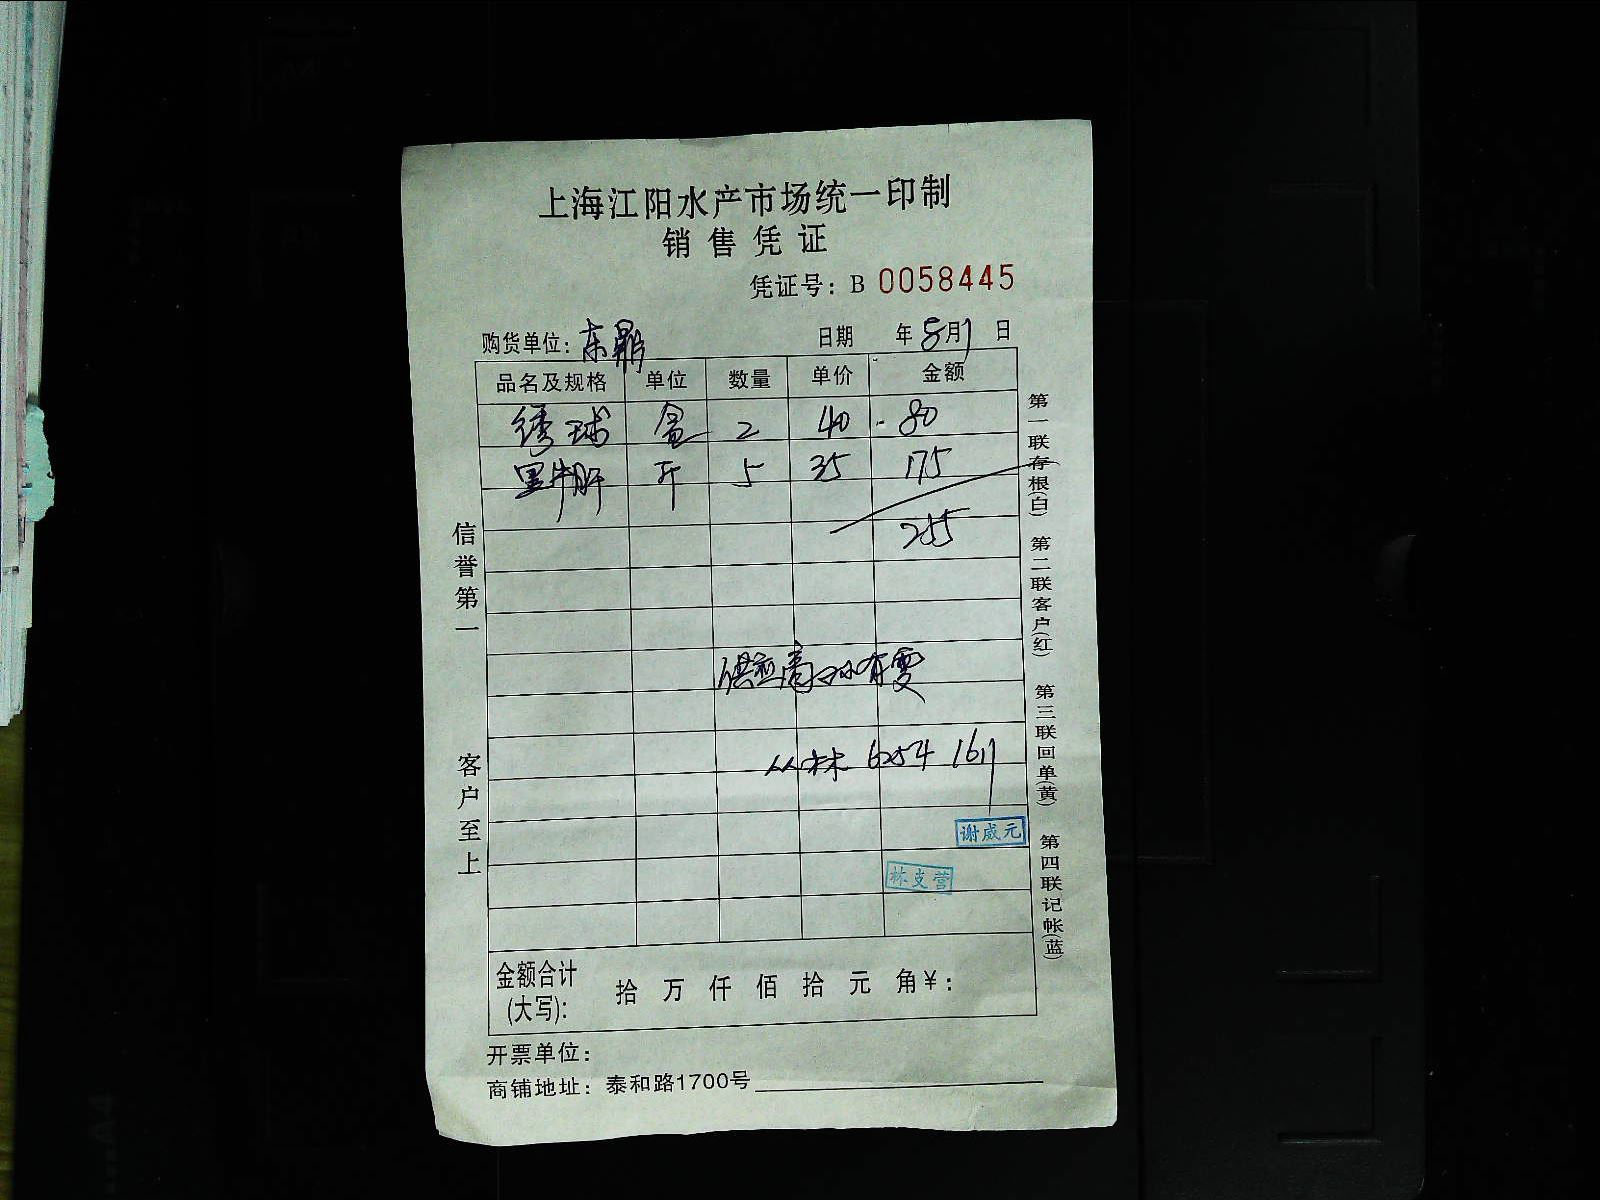 上海江阳水产市场统一印制
销售凭证
凭证号：B 0058445
购货单位：东鼎 日期 年 8月1 日
品名及规格 单位 数量 单价 金额
绣球 盒 2 40 80
黑牛肝 斤 5 35 175
255
信誉第一
客户至上
6254 1611
谢威元
林支营
第一联存根(白) 第二联客户(红) 第三联回单(黄) 第四联记帐(蓝)
金额合计
(大写): 拾 万 仟 佰 拾 元 角 ¥：
开票单位：
商铺地址：泰和路1700号